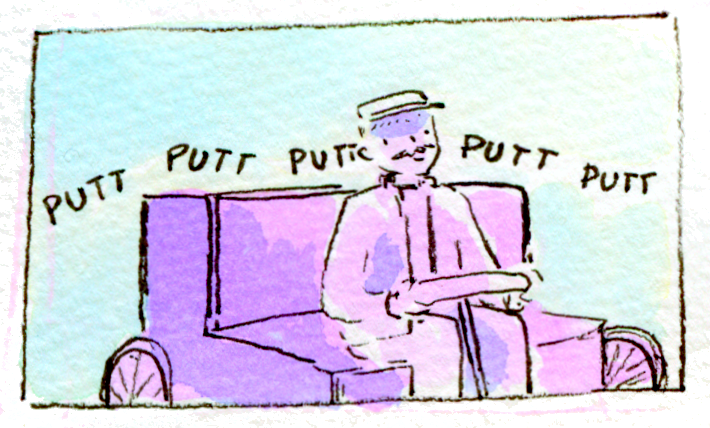 PUTT PUTT PUTT PUTT PUTT